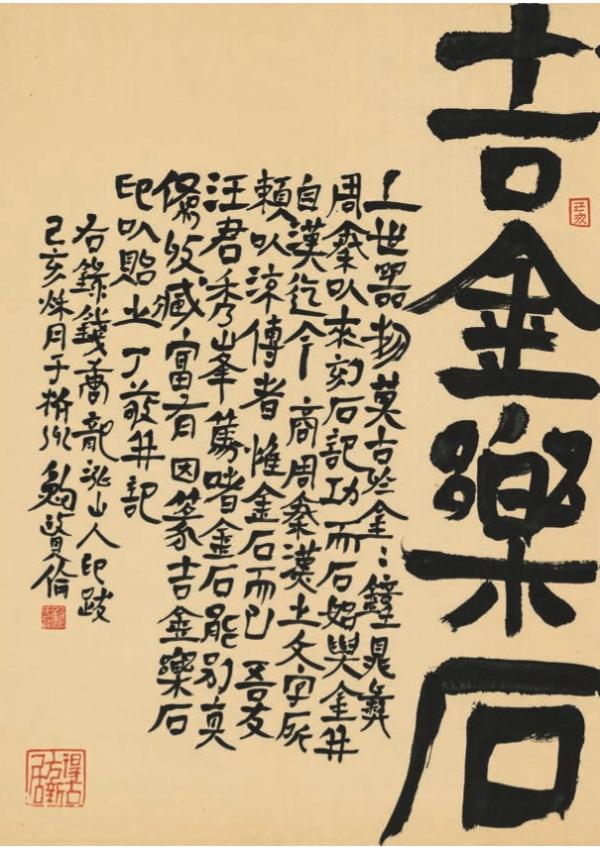 吉金樂石
上世器物莫古於金〻鐘鼎彝
周秦以來刻石記功而石始與金并
自漢迄今商周秦漢之文字所
賴以流傳者惟金石而已吾友
汪君秀峯篤嗜金石能別真
偽收藏富有因篆吉金樂石
印以貽之丁敬并記
右錄錢唐龍泓山人印跋
己亥秋月于杭州鮑賢倫
己亥